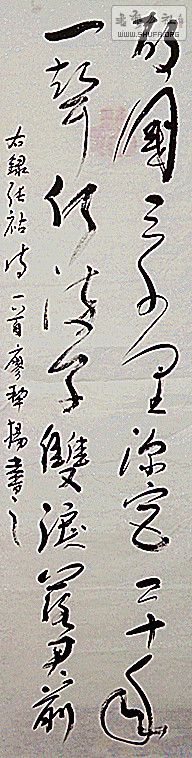 故國三千里深宮二十年
一聲何滿子雙淚落君前
右錄張祜詩一首廖揚書之
WWW.SHUFA.ORG